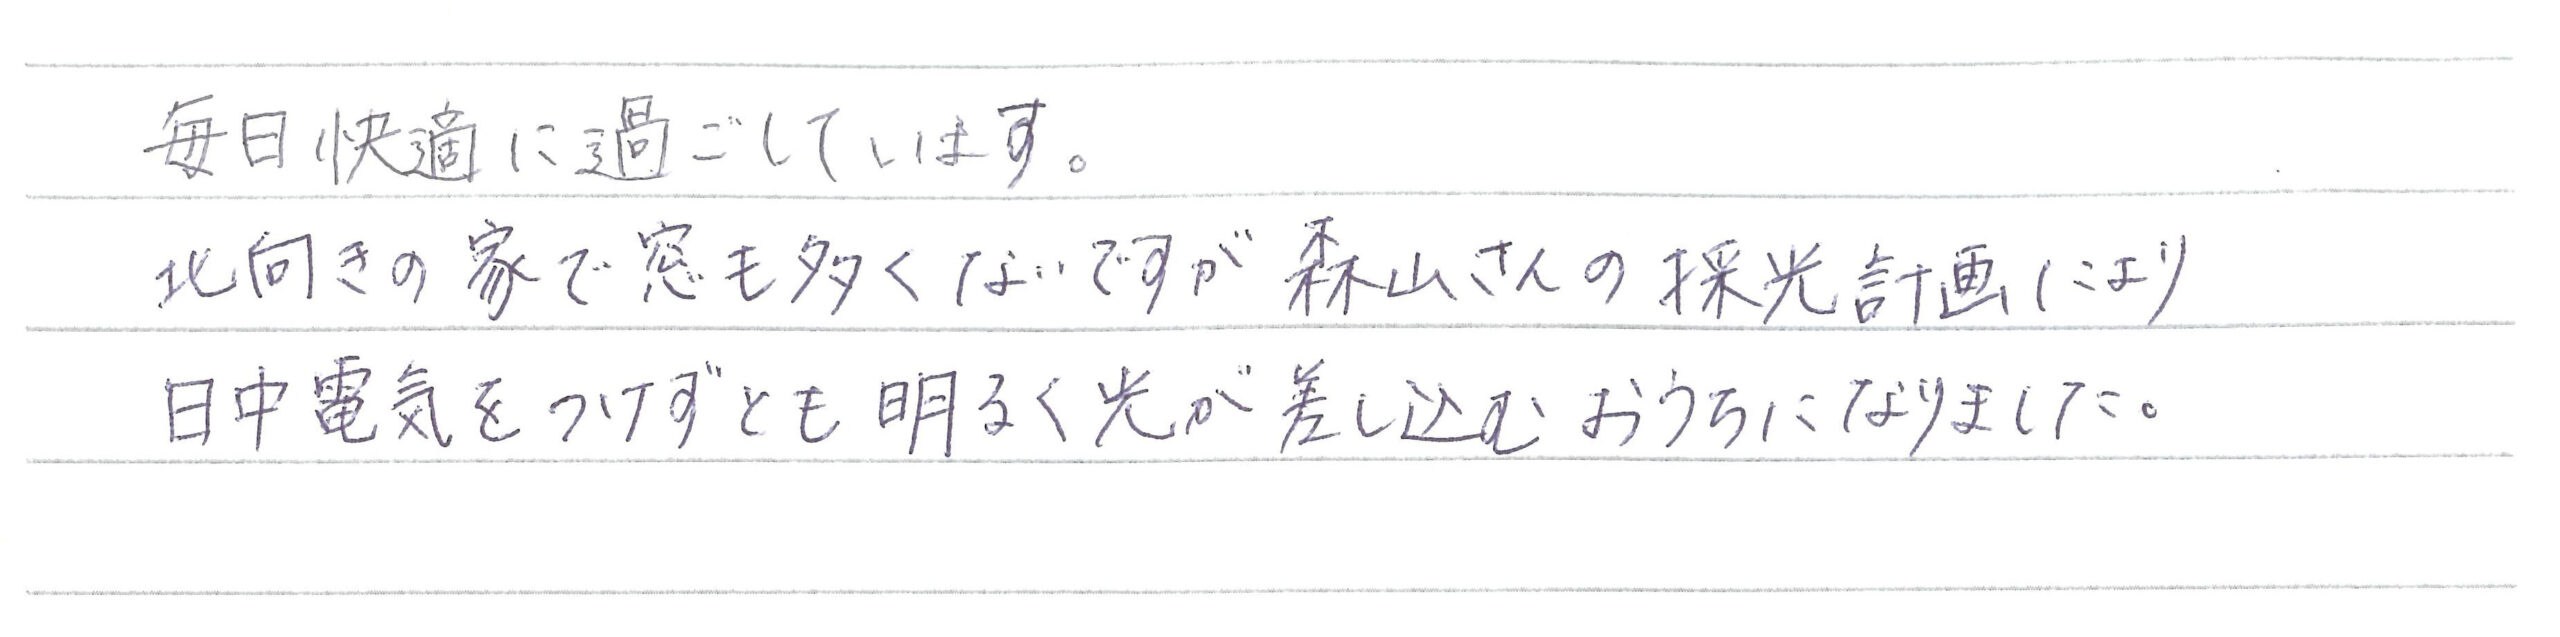 毎日快適に過ごしています。
北向きの家で窓も多くないですが森山さんの採光計画により
日中電気をつけずとも明るく光が差し込むおうちになりました。